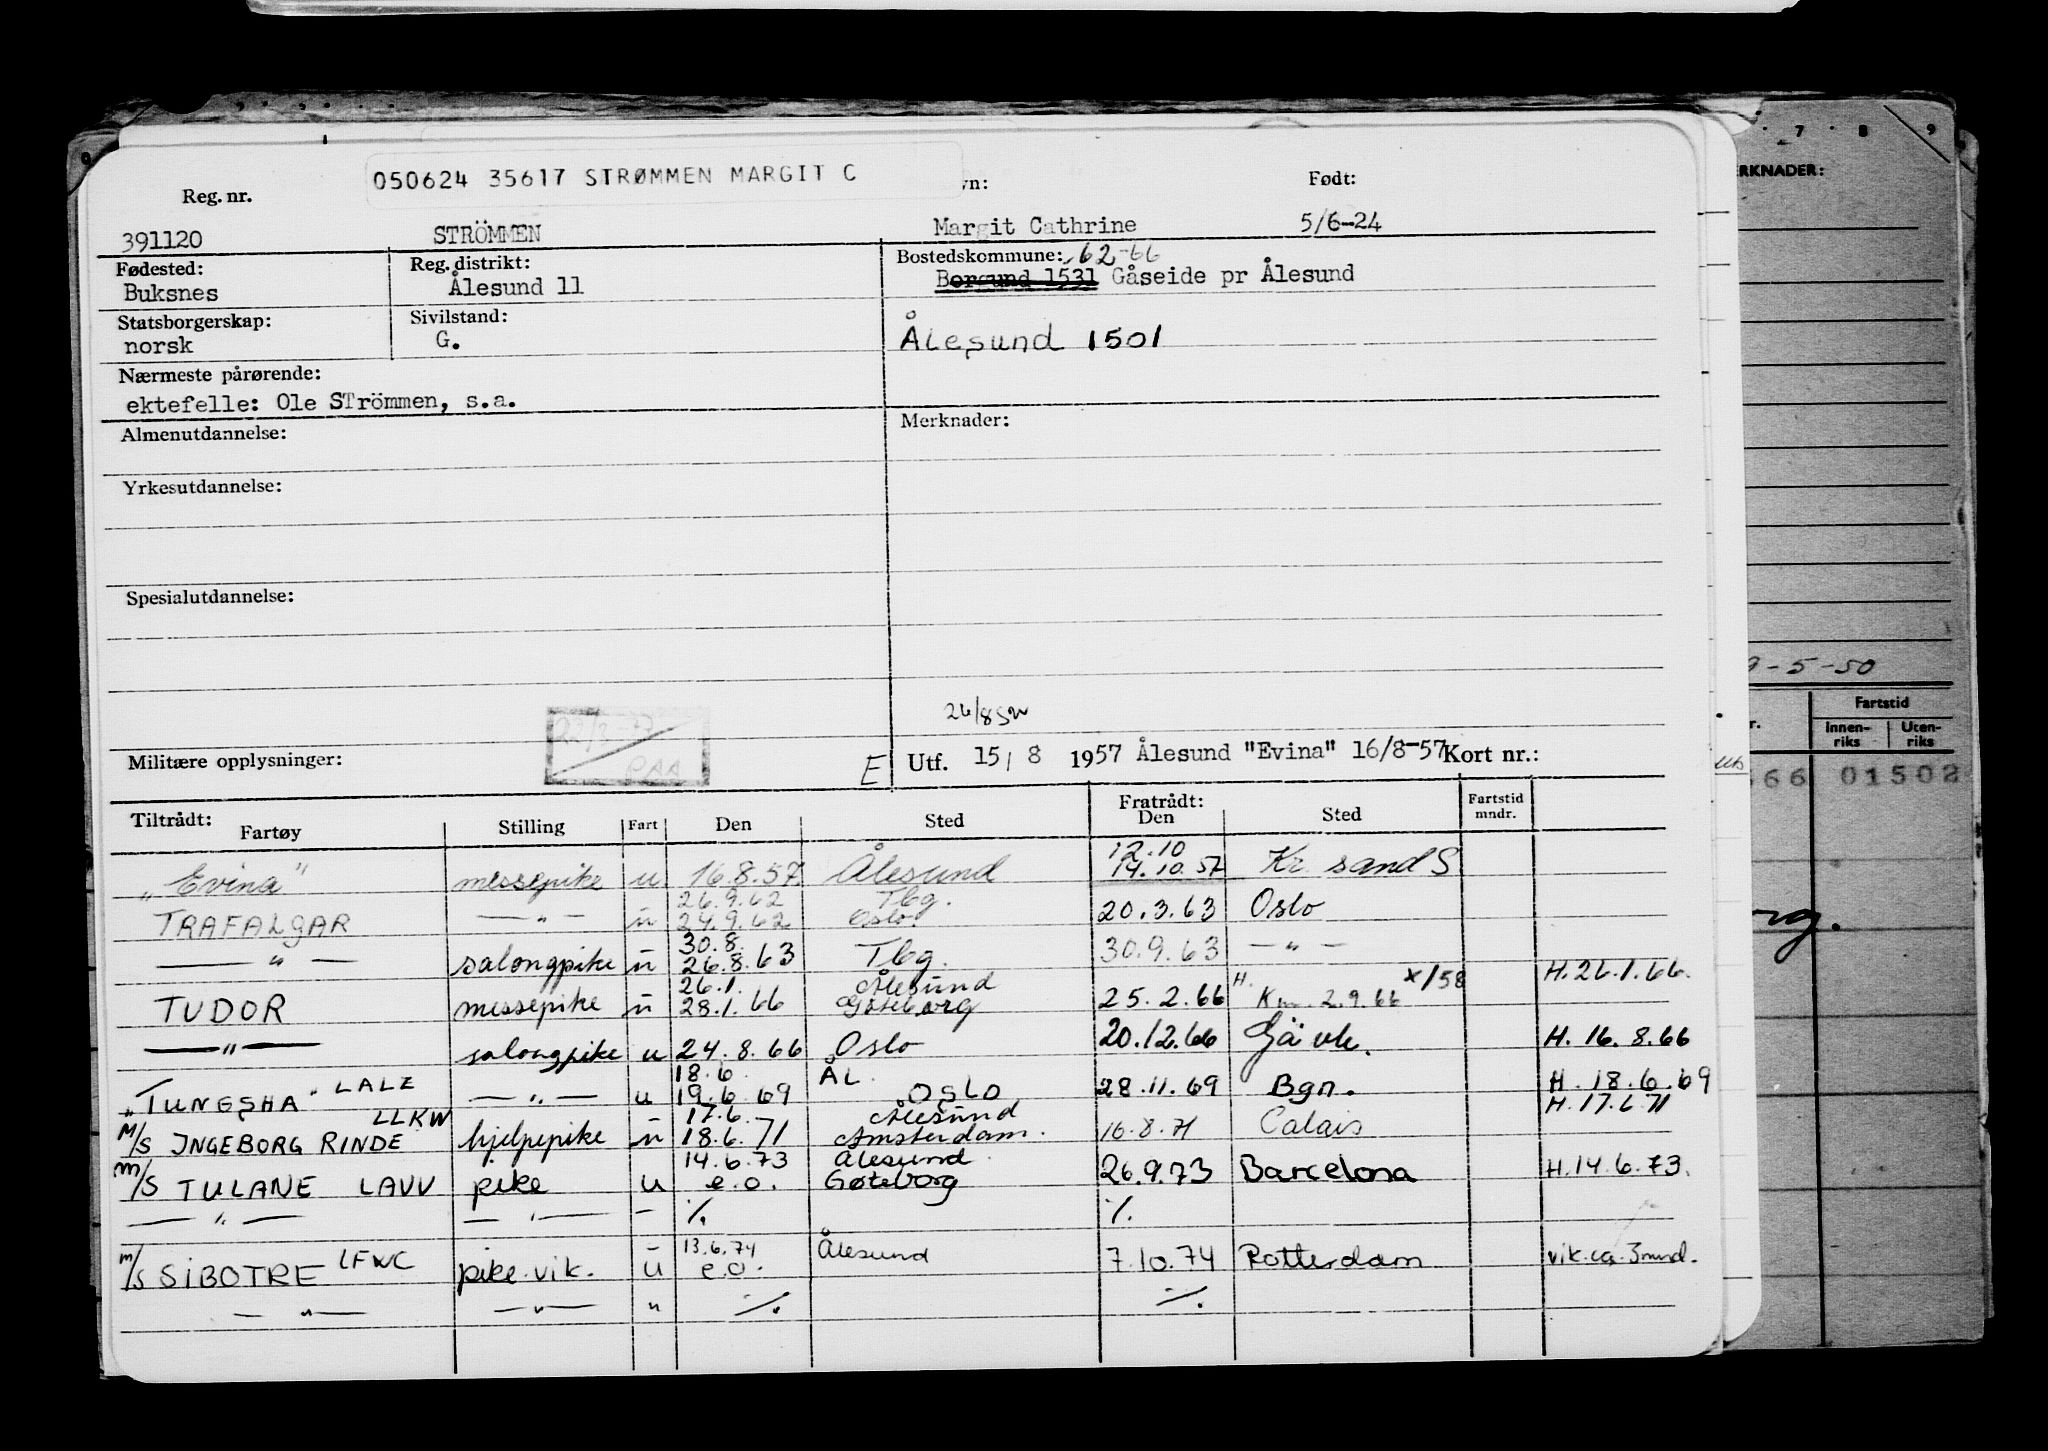 050624 35617 STRØMMEN MARGIT C
Reg. nr. vn: Født:
391120 STRÖMMEN Margit Cathrine 5/6-24
Fødested: Reg. distrikt: Bostedskommune: 62-66
Buksnes Ålesund 11 Borgund 1531 Gåseide pr Ålesund
Statsborgerskap: Sivilstand:
norsk G. Ålesund 1501
Nærmeste pårørende:
ektefelle: Ole STrömmen, s.a.
Almenutdannelse: Merknader:
Yrkesutdannelse:
Spesialutdannelse:
26/8
Militære opplysninger: E Utf. 15/8 1957 Ålesund "Evina" 16/8-57 Kort nr.:
Tiltrådt: Fratrådt:
Fartøy Stilling Fart Den Sted Den Sted Fartstid mndr.
12.10
„Evina" messepike u 16.8.57 Ålesund 14.10.57 Kr. sand S
26.9.62 Tbg.
TRAFALGAR —"— ü 24.9.62 Oslo. 20.3.63 Oslo
30.8.
—"— salongpike ü 26.8.63 Tbg. 30.9.63 —"—
26.1. Ålesund H. x/58 H. 26.1.66.
TUDOR messepike ü 28.1.66 Göteborg 25.2.66 2.9.66
—"— salongpike u 24.8.66 Oslo 20.12.66 Gävle. H. 16.8.66
18.6. ÅL.
„TUNGSHA" LALZ —"— u 19.6.69 OSLO 28.11.69 Bgn. H. 18.6.69
LLKW 17.6. Ålesund H. 17.6.71
M/S INGEBORG RINDE hjelpepike ü 18.6.71 Amsterdam. 16.8.71 Calais
14.6.73 Ålesund
m/S TULANE LAVV pike u e.o. Gøteborg 26.9.73 Barcelona H. 14.6.73.
—"— —"— - ٪. ٪.
13.6.74 Ålesund
m/S SIBOTRE LFWC pike vik. u e.o. 7.10.74 Rotterdam vik. ca. 3 mnd.
—"— —"— " ٪. ٪.
7 8 9
RKNADER:
9-5-50
r. Fartstid
Innen-riks Uten-riks
566 01502
rg.